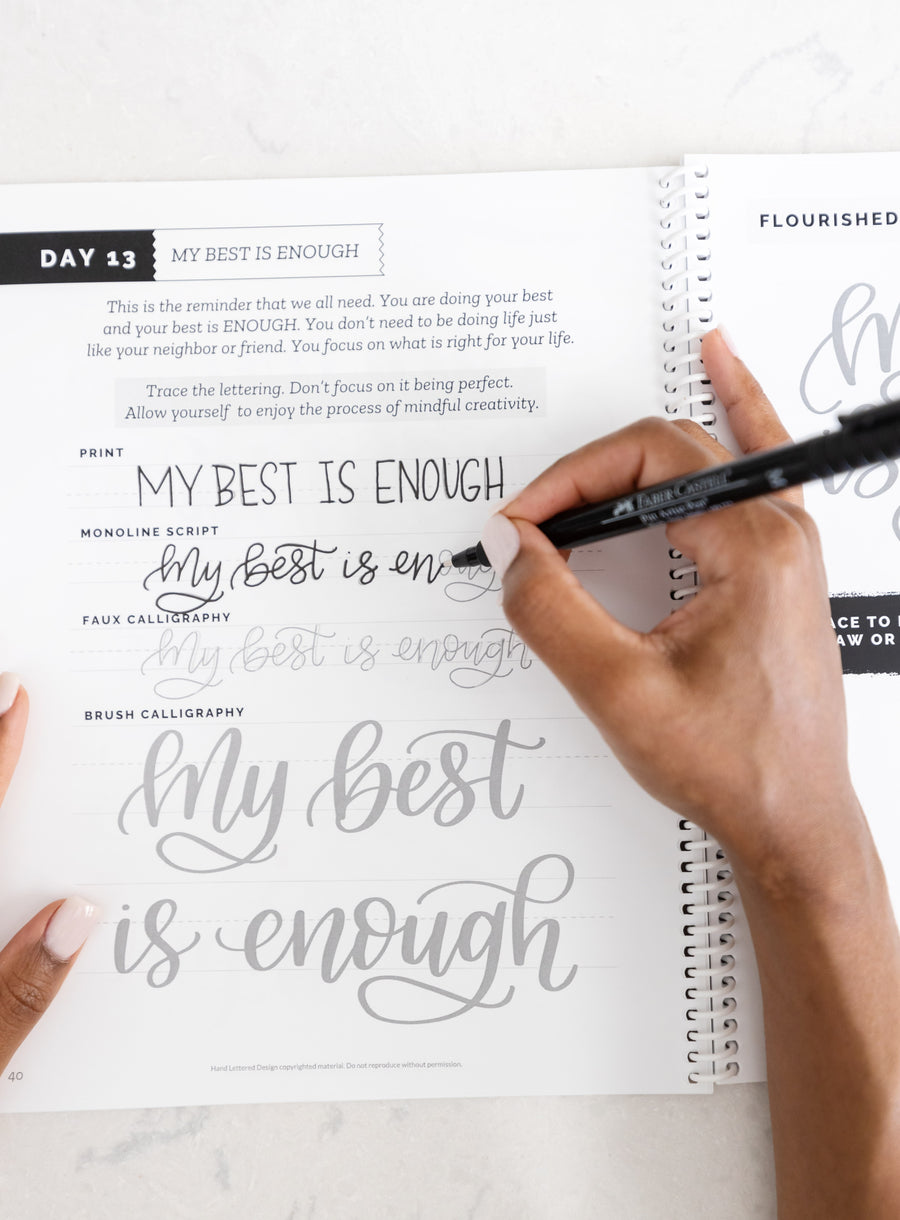 DAY 13
MY BEST IS ENOUGH
This is the reminder that we all need. You are doing your best
and your best is ENOUGH. You don't need to be doing life just
like your neighbor or friend. You focus on what is right for your life.
Trace the lettering. Don't focus on it being perfect.
Allow yourself to enjoy the process of mindful creativity.
PRINT
MY BEST IS ENOUGH
MONOLINE SCRIPT
My best is enoug
FAUX CALLIGRAPHY
My best is enough
BRUSH CALLIGRAPHY
My best
is enough
Hand Lettered Design copyrighted material. Do not reproduce without permission.
40
FLOURISHED
is
TO
OR
FABER-CASTELL